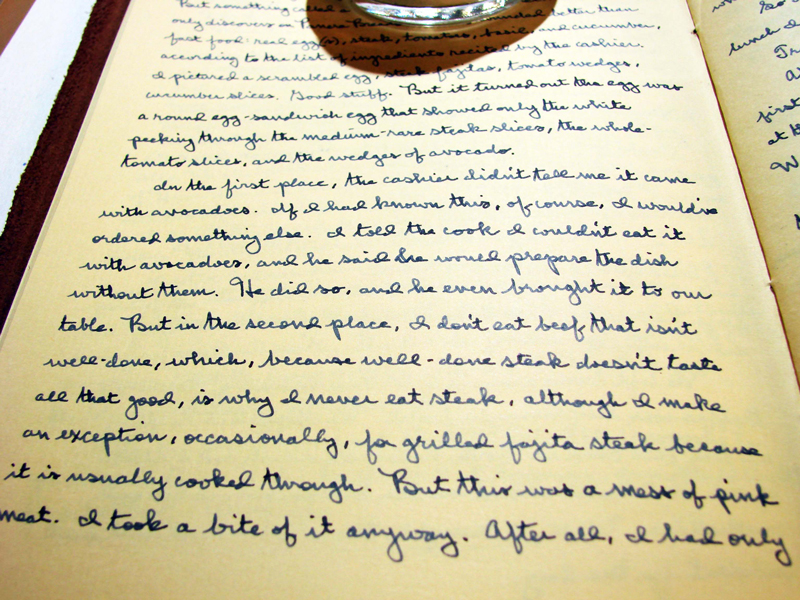 But something called
better than
only discovers
fast food: real egg(s), steak, tomatoes, basil, and cucumber,
according to the list of ingredients recited by the cashier.
I pictured a scrambled egg, steak fajitas, tomato wedges,
cucumber slices. Good stuff. But it turned out the egg was
a round egg-sandwich egg that showed only the white
peeking through the medium-rare steak slices, the whole-
tomato slices, and the wedges of avocado.
In the first place, the cashier didn't tell me it came
with avocadoes. If I had known this, of course, I would've
ordered something else. I told the cook I couldn't eat it
with avocadoes, and he said he would prepare the dish
without them. He did so, and he even brought it to our
table. But in the second place, I don't eat beef that isn't
well-done, which, because well-done steak doesn't taste
all that good, is why I never eat steak, although I make
an exception, occasionally, for grilled fajita steak because
it is usually cooked through. But this was a mess of pink
meat. I took a bite of it anyway. After all, I had only
lunch
first
at